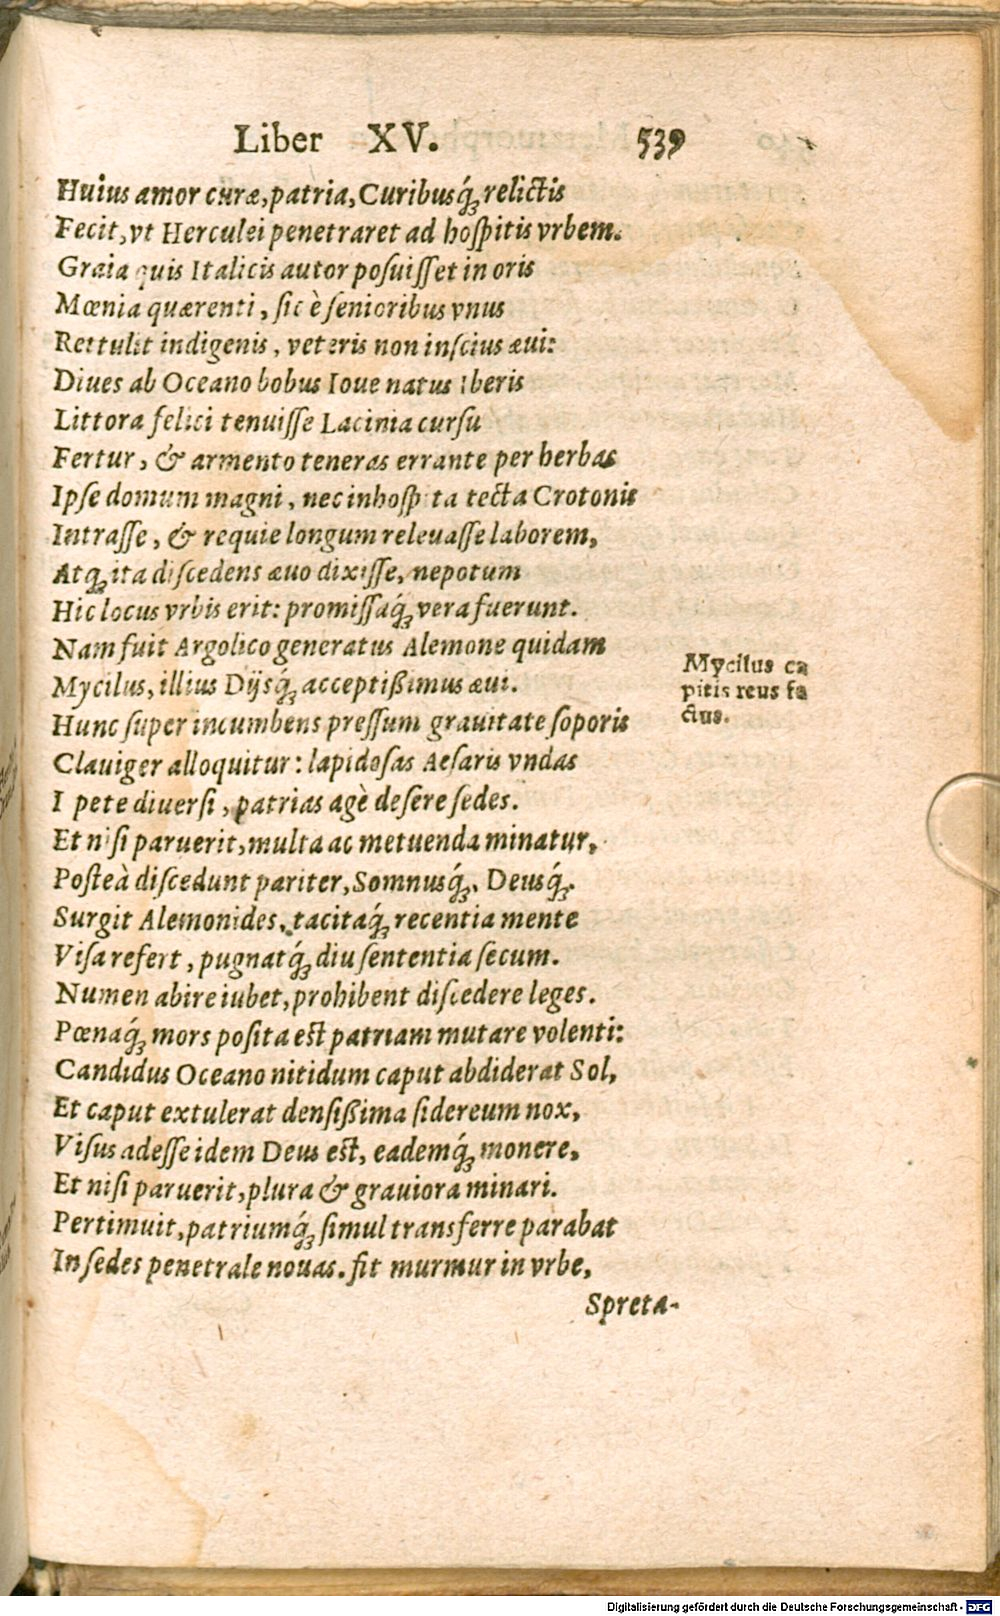 Liber XV. 539
Huius amor curæ, patria, Curibusq́; relictis
Fecit, vt Herculei penetraret ad hoſpitis vrbem.
Graia quis Italicis autor poſuiſſet in oris
Mœnia quærenti, ſic è ſenioribus vnus
Rettulit indigenis, veteris non inſcius æui:
Diues ab Oceano bobus Ioue natus Iberis
Littora felici tenuiſſe Lacinia curſu
Fertur, & armento teneras errante per herbas
Ipſe domum magni, nec inhoſpita tecta Crotonis
Intraſſe, & requie longum releuaſſe laborem,
Atq; ita diſcedens æuo dixiſſe, nepotum
Hic locus vrbis erit: promiſſaq́; vera fuerunt.
Nam fuit Argolico generatus Alemone quidam
Mycilus, illius Dijsq́; acceptißimus æui.
Hunc ſuper incumbens preſſum grauitate ſoporis
Clauiger alloquitur: lapidoſas Aeſaris vndas
I pete diuerſi, patrias agè deſere ſedes.
Et niſi paruerit, multa ac metuenda minatur,
Poſteà diſcedunt pariter, Somnusq́;, Deusq́;.
Surgit Alemonides, tacitaq́; recentia mente
Viſa refert, pugnatq́; diu ſententia ſecum.
Numen abire iubet, prohibent diſcedere leges.
Pœnaq́; mors poſita eſt patriam mutare volenti:
Candidus Oceano nitidum caput abdiderat Sol,
Et caput extulerat denſißima ſidereum nox,
Viſus adeſſe idem Deus eſt, eademq́; monere,
Et niſi paruerit, plura & grauiora minari.
Pertimuit, patriumq́; ſimul transferre parabat
In ſedes penetrale nouas. fit murmur in vrbe,
Spreta-
Mycilus ca
pitis reus fa
ctus.
Digitalisierung gefördert durch die Deutsche Forschungsgemeinschaft - DFG